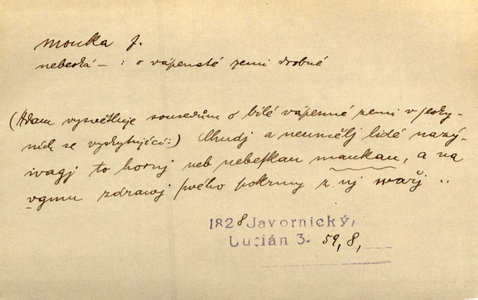 mouka f.
nebeská — : o vápenaté zemi drobné
(Adam vysvětluje sousedům o bílé vápenné zemi v jesky-
ních se vyskytující:) Chudj a neumělj lidé nazý-
wagj to hornj neb nebeſkau maukau, a na
ugmu zdrawj ſwého pokrmy z nj wařj ..
1828 Javornický,
Lucián 3. 59, 8,